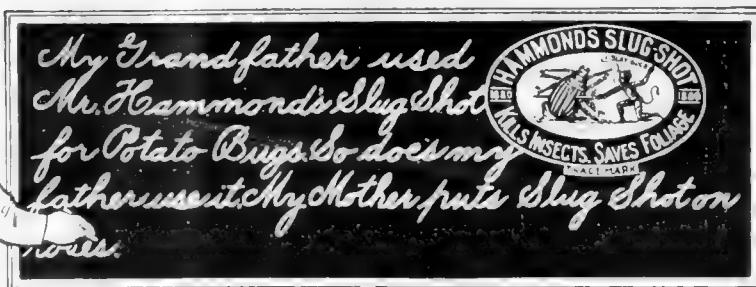 My Grandfather used
Mr. Hammond's Slug Shot
for Potato Bugs. So does my
father use it. My Mother puts Slug Shot on
roses.
HAMMONDS SLUG-SHOT
1880
KILLS INSECTS. SAVES FOLIAGE
TRADE MARK